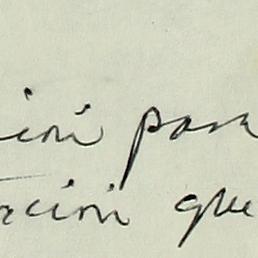 ión para
ación que